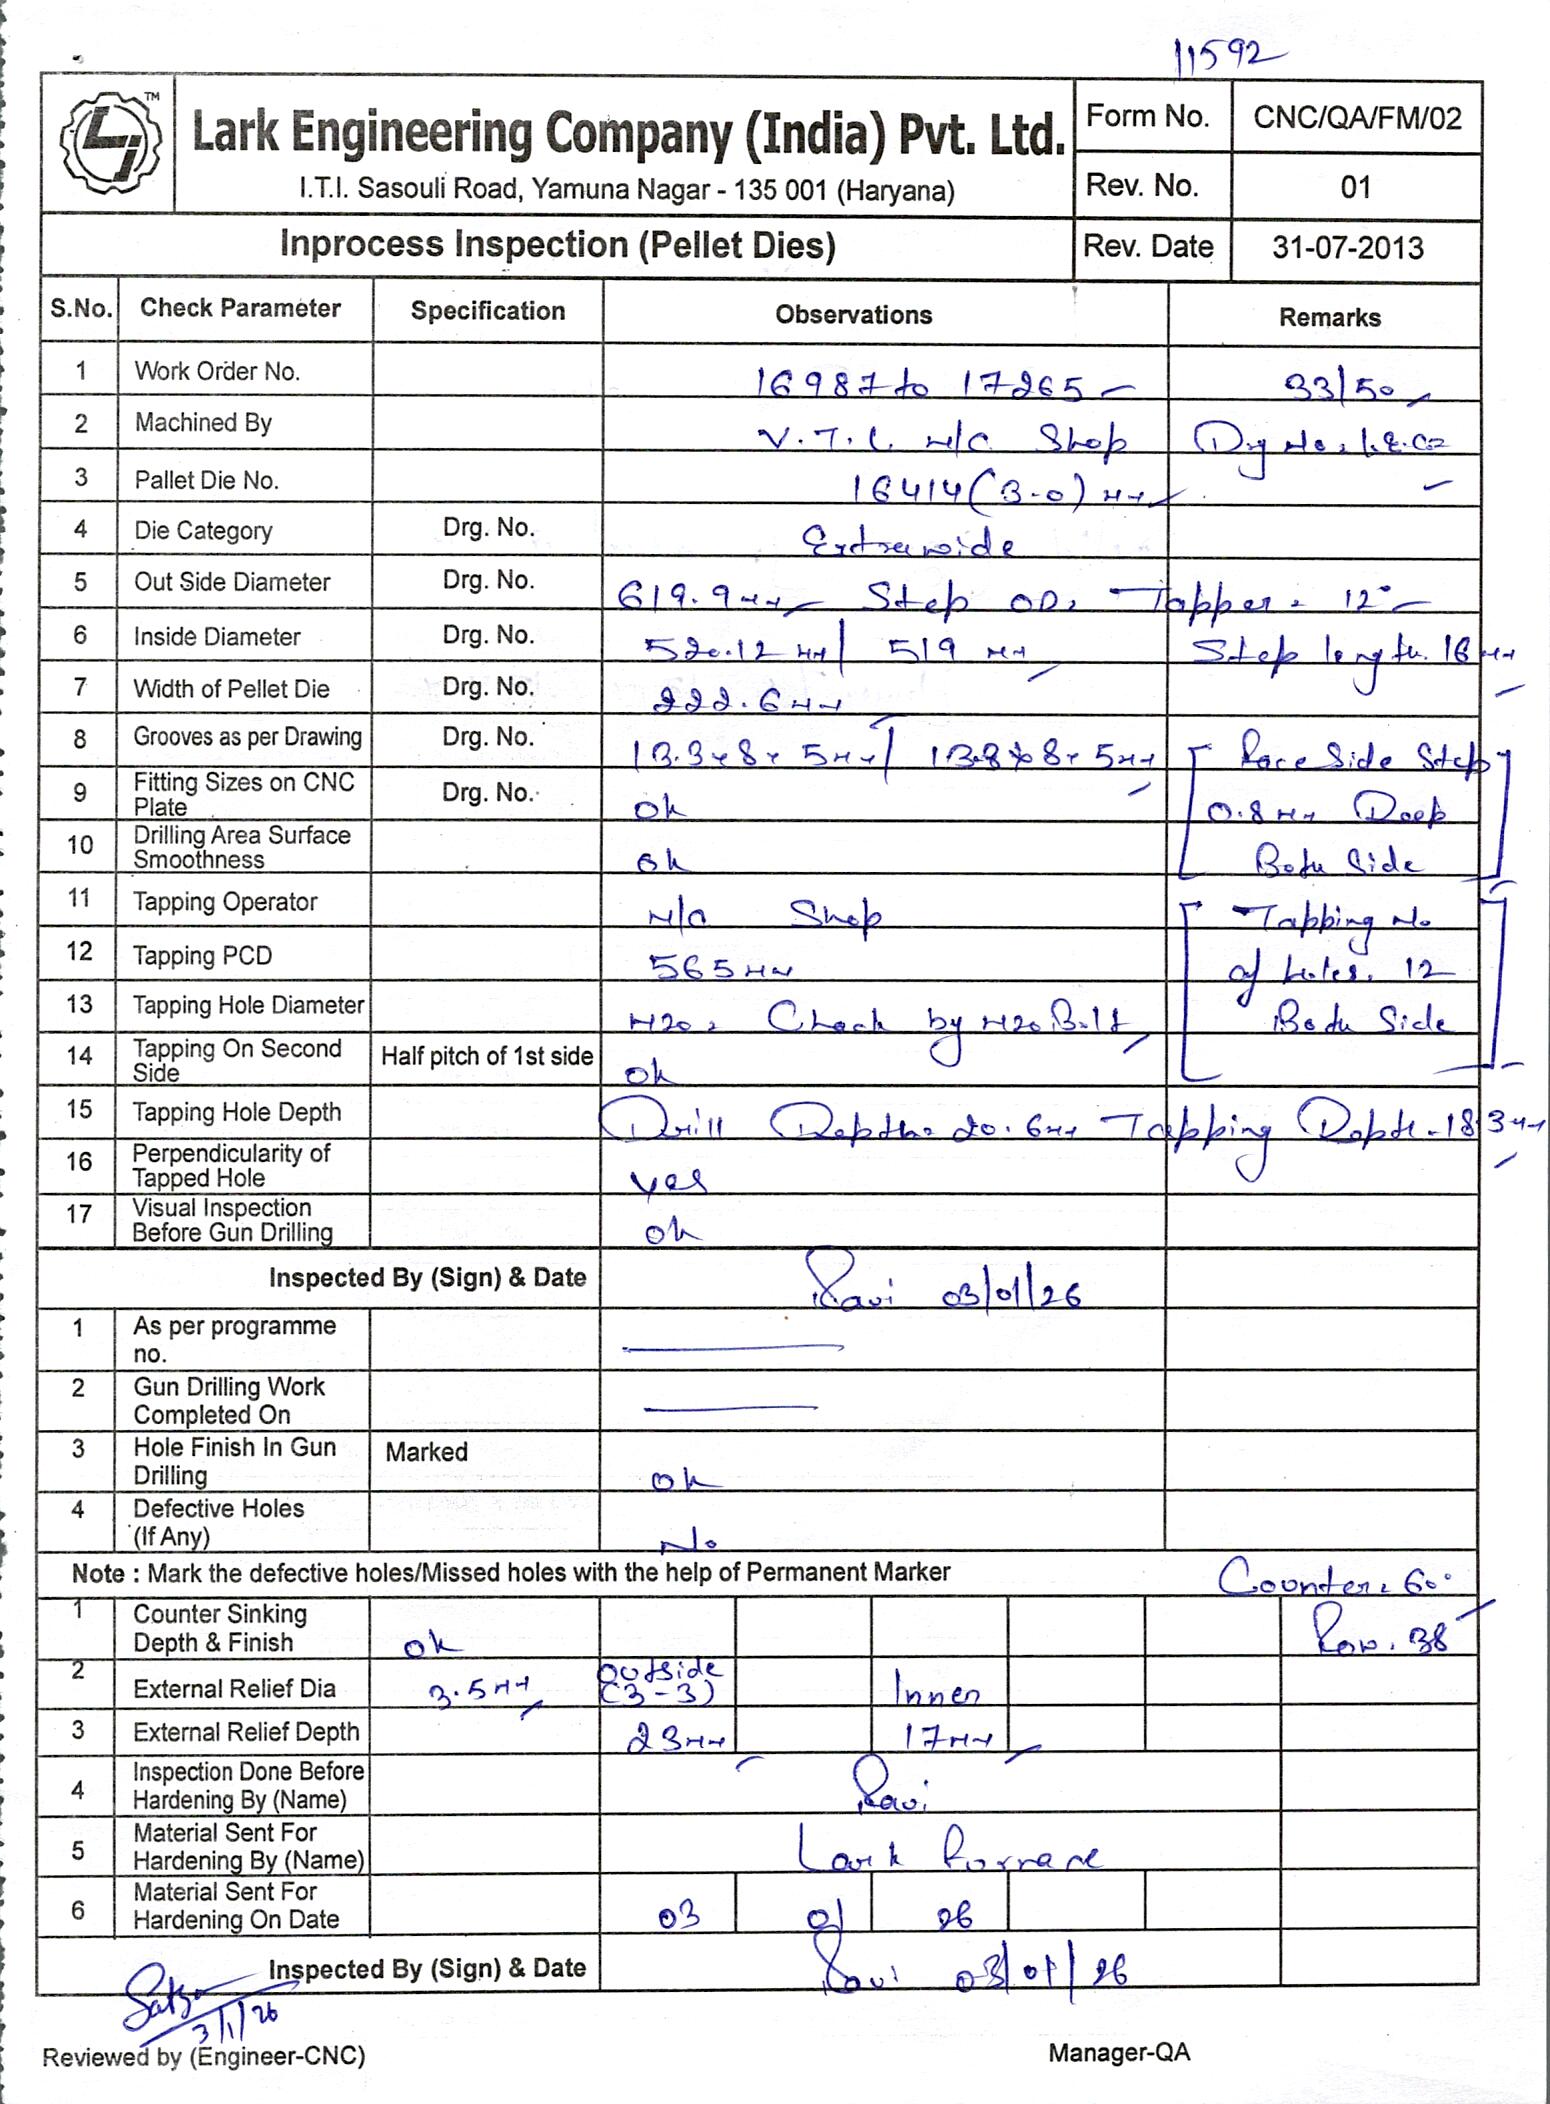 11592
LJ TM
Lark Engineering Company (India) Pvt. Ltd.
I.T.I. Sasouli Road, Yamuna Nagar - 135 001 (Haryana)
Form No. CNC/QA/FM/02
Rev. No. 01
Inprocess Inspection (Pellet Dies) Rev. Date 31-07-2013
S.No. Check Parameter Specification Observations Remarks
1 Work Order No. 16987 to 17265 33/50
2 Machined By V.T.L M/C Shop Drg No.
3 Pallet Die No. 16414 (3-0) MM
4 Die Category Drg. No. Extrawide
5 Out Side Diameter Drg. No. 619.9 MM Step OD. Tapper. 12°
6 Inside Diameter Drg. No. 520.12 MM / 519 MM Step length. 16 MM
7 Width of Pellet Die Drg. No. 222.6 MM
8 Grooves as per Drawing Drg. No. 13.3x8x5MM / 13.8x8x5MM Race Side Step
9 Fitting Sizes on CNC Plate Drg. No. ok 0.8 MM Deep
10 Drilling Area Surface Smoothness ok Both Side
11 Tapping Operator M/C Shop Tapping No.
12 Tapping PCD 565 MM of holes. 12
13 Tapping Hole Diameter M20, Check by M20 Bolt Both Side
14 Tapping On Second Side Half pitch of 1st side ok
15 Tapping Hole Depth Drill Depth. 20.6MM Tapping Depth - 18.3MM
16 Perpendicularity of Tapped Hole yes
17 Visual Inspection Before Gun Drilling ok
Inspected By (Sign) & Date Ravi 03/01/26
1 As per programme no.
2 Gun Drilling Work Completed On
3 Hole Finish In Gun Drilling Marked ok
4 Defective Holes (If Any) No
Note : Mark the defective holes/Missed holes with the help of Permanent Marker Counter. 60°
1 Counter Sinking Depth & Finish ok Row. 38
2 External Relief Dia 3.5MM Outside (3-3) Inner
3 External Relief Depth 23MM 17MM
4 Inspection Done Before Hardening By (Name) Ravi
5 Material Sent For Hardening By (Name) Lark Fornace
6 Material Sent For Hardening On Date 03 01 26
Inspected By (Sign) & Date Ravi 03/01/26
3/1/26
Reviewed by (Engineer-CNC) Manager-QA